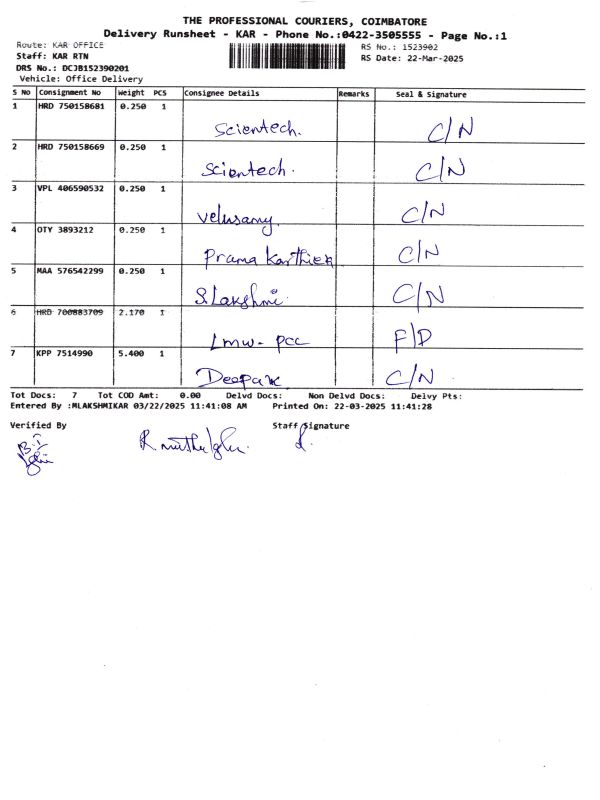 THE PROFESSIONAL COURIERS, COIMBATORE
Delivery Runsheet - KAR - Phone No.:0422-3505555 - Page No.:1
Route: KAR OFFICE RS No.: 1523902
Staff: KAR RTN RS Date: 22-Mar-2025
DRS No.: DCJB152390201
Vehicle: Office Delivery
S No Consignment No Weight PCS Consignee Details Remarks Seal & Signature
1 HRD 750158681 0.250 1
Scientech. C/N
2 HRD 750158669 0.250 1
Scientech. C/N
3 VPL 406590532 0.250 1
Velusamy. C/N
4 OTY 3893212 0.250 1
Prama Karthick C/N
5 MAA 576542299 0.250 1
S. Lakshmi. C/N
6 HRD 700883709 2.170 1
Lmw- pcc F/D
7 KPP 7514990 5.400 1
Deepak C/N
Tot Docs: 7 Tot COD Amt: 0.00 Delvd Docs: Non Delvd Docs: Delvy Pts:
Entered By :MLAKSHMIKAR 03/22/2025 11:41:08 AM Printed On: 22-03-2025 11:41:28
Verified By Staff Signature